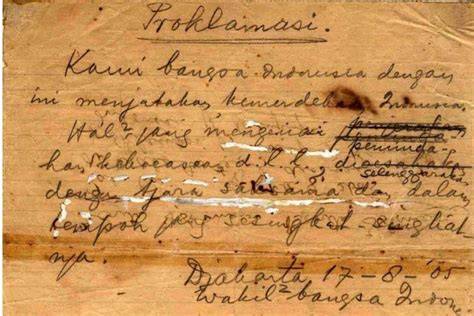 Proklamasi.
Kami bangsa Indonesia dengan
ini menjatakan kemerdekaan Indonesia.
Hal² jang mengenai peminda-
han kekoeasaan d.l.l., diselenggarakan
dengan tjara saksama dan dalam
tempoh jang sesingkat-singkat
nja.
Djakarta 17-8-'05
Wakil² bangsa Indone